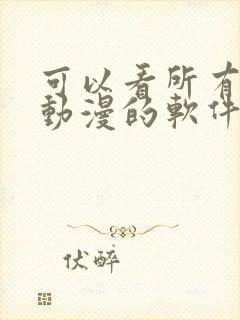 可以看所有
動漫的軟件
伏醉